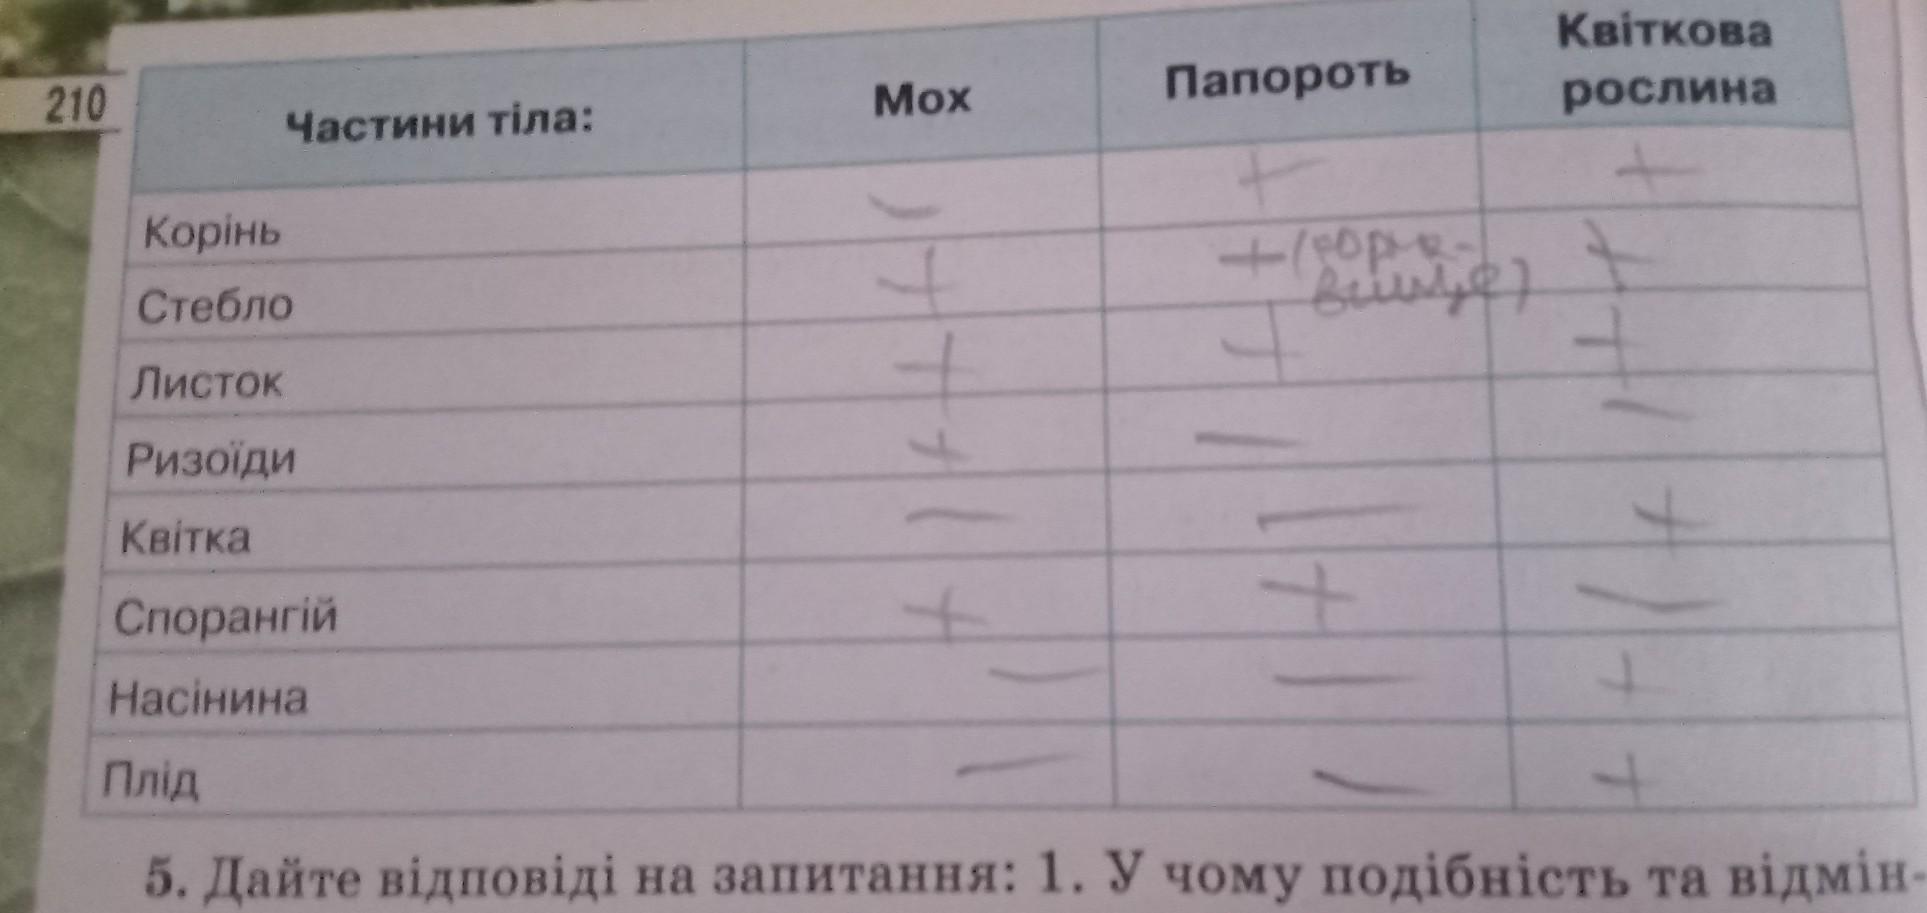 210
Частини тіла: Мох Папороть Квіткова рослина
Корінь – + +
Стебло + + (коренвище) +
Листок + + +
Ризоїди + – –
Квітка – – +
Спорангій + + –
Насінина – – +
Плід – – +
5. Дайте відповіді на запитання: 1. У чому подібність та відмін-